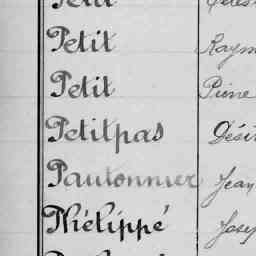 Petit
Petit Raym
Petit Pierre
Petitpas Dési
Pautonnier Jean
Phélippé Jose